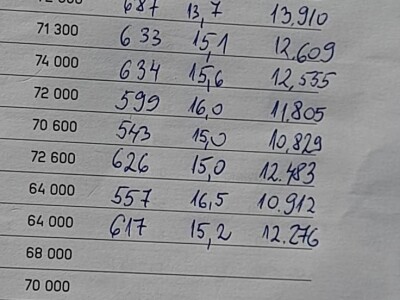 687 13,7 13,910
71 300 633 15,1 12,609
74 000 634 15,6 12,535
72 000 599 16,0 11,805
70 600 543 15,0 10,829
72 600 626 15,0 12.483
64 000 557 16,5 10.912
64 000 617 15,2 12.276
68 000
70 000